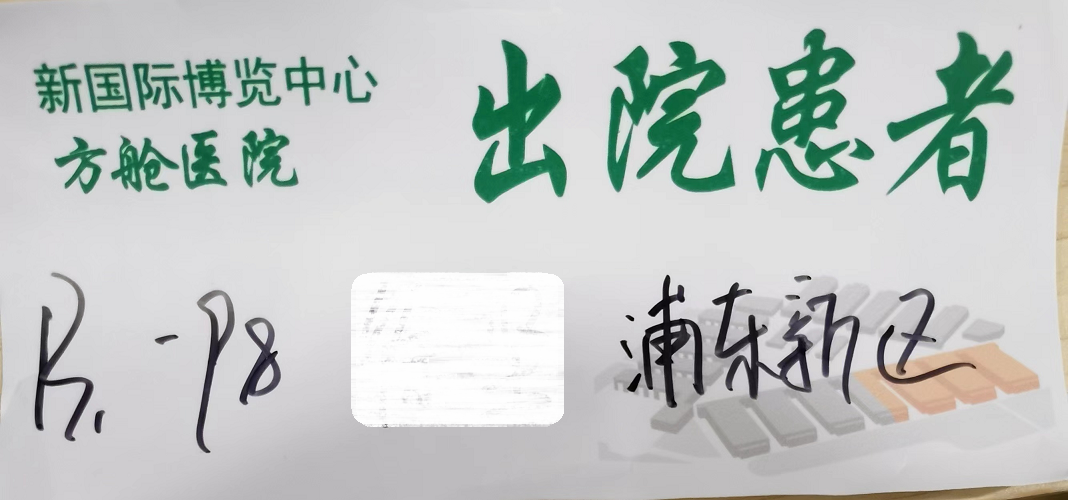 新国际博览中心
方舱医院
出院患者
-P8
浦东新区